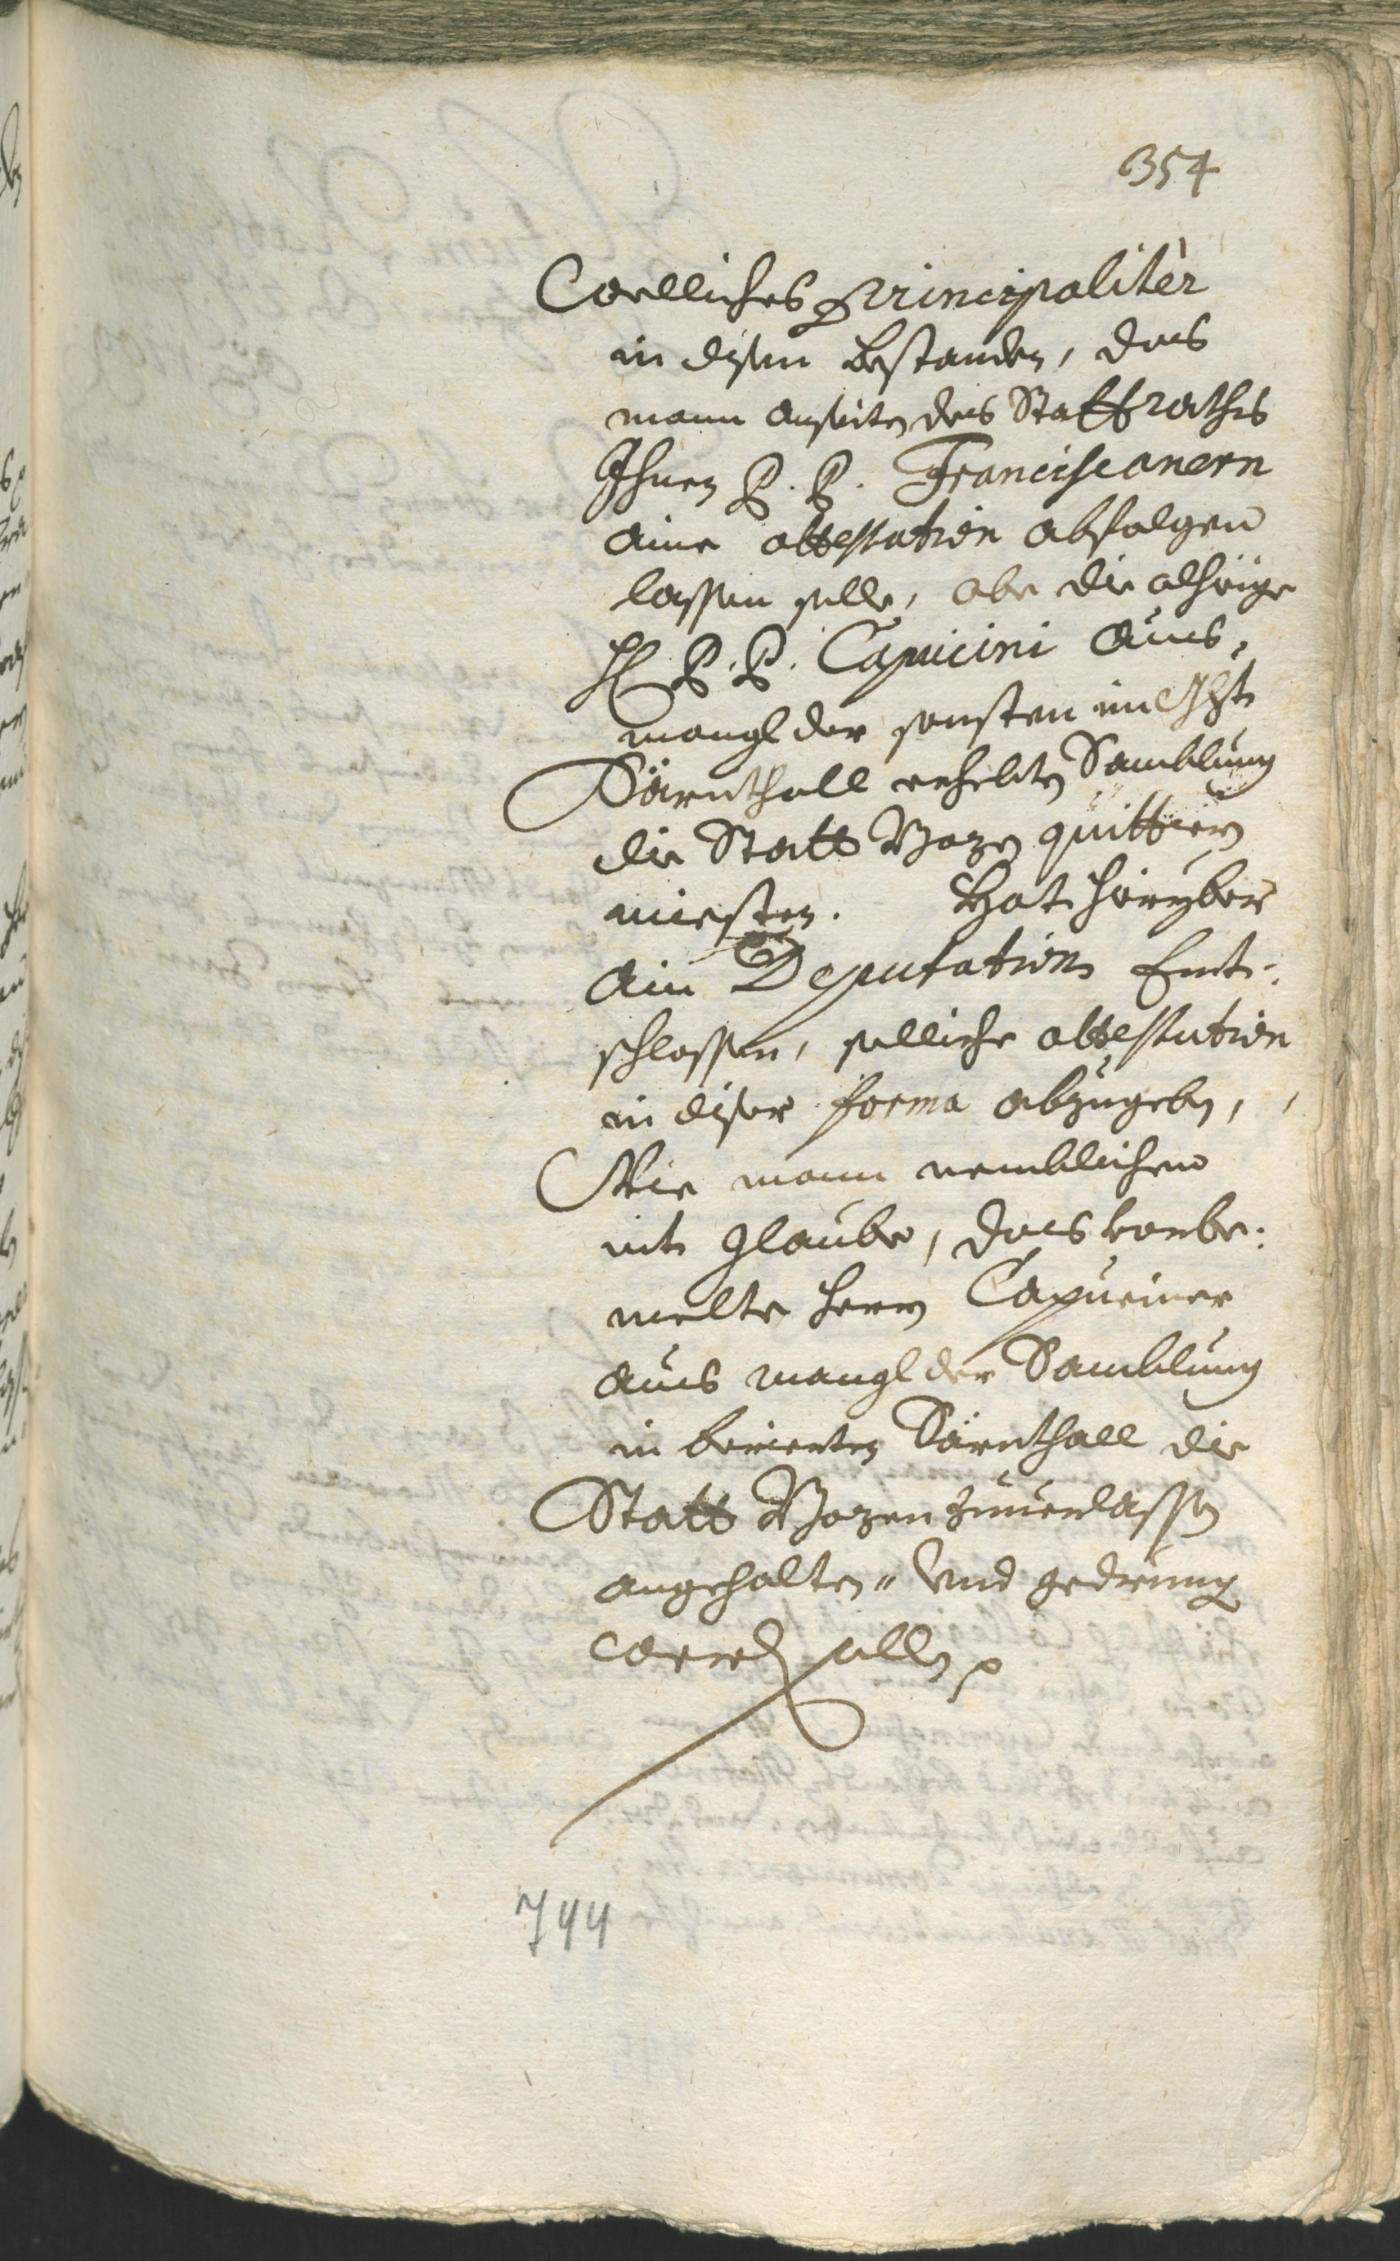 354
Welliches principaliter
in disem bestanden, das
mann anseiten des Stattraths
Ihnen P. P. Franciscanern
aine attestation abfolgen
lassen solle, obe die alhieige
H P. P. Capucini aus,
mangl der sonsten im Ght
Särnthall erhebten Samblung
die Statt Bozen quittiern
miesten. Hat hieryber
ain Deputation Ent:
schlossen, solliche attestation
in diser forma abzugeben,
Wie mann nemblichen
nit glaube, das vorbe:
melte Herrn Capuciner
aus mangl der Samblung
in berierten Särnthall die
Statt Bozen zuuerlassen
angehalten " Und gedrungen
werden sollen
744